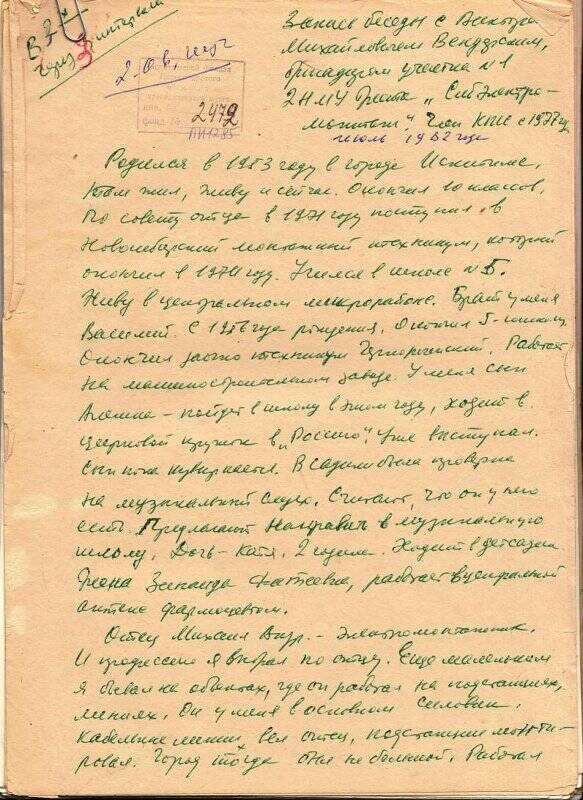 В 2х
через 3 интервала
2 экз.
2472
ПИ1285
Запись беседы с Виктором
Михайловичем
бригадиром участка №1
2НМУ треста „Сибэлектро-
монтаж". Член КПСС с 1977 г.
июль 1982 года
Родился в 1953 году в городе Искитиме,
там жил, живу и сейчас. Окончил 10 классов.
По совету отца в 1971 году поступил в
Новосибирский монтажный техникум, который
окончил в 1974 году. Учился в школе №5.
Живу в центральном микрорайоне. Брат у меня
Василий. С 1956 года рождения. Окончил 5-школу.
Окончил заочно техникум Черепановский. Работает
на машиностроительном заводе. У меня сын
Алёша – пойдет в школу в этом году, ходит в
цирковой кружок в „Россию". Уже выступал.
Сын пока кувыркается. В садике была проверка
на музыкальный слух. Считают, что он у него
есть. Предлагают направить в музыкальную
школу. Дочь – Катя, 2 годика. Ходит в детсадик
Жена Зинаида работает в центральной
аптеке фармацевтом.
Отец Михаил Андр. – электромонтажник.
И профессию я выбрал по отцу. Еще маленьким
я бывал на объектах, где он работал на подстанциях,
линиях. Он у меня в основном силовик.
Кабельные линии вел отец, подстанции монти-
ровал. Город тогда был не большой. Работал